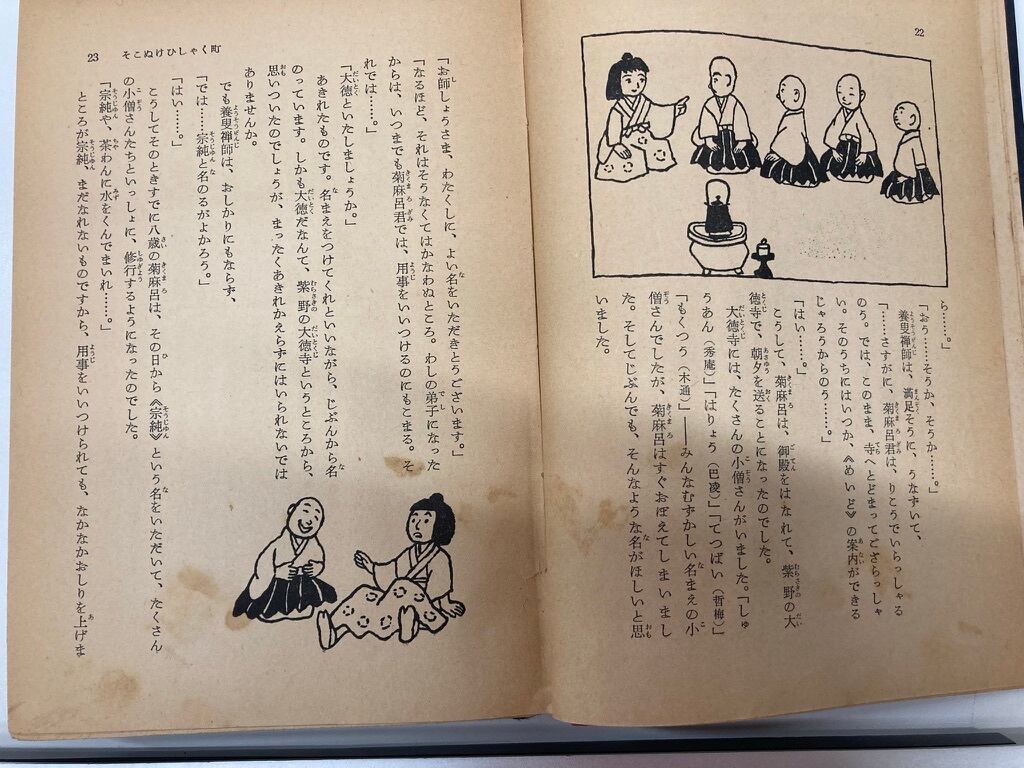 22
ら……。」
「おう……そうか、そうか……。」
養叟禅師は、満足そうに、うなずいて、
「……さすがに、菊麻呂君は、りこうでいらっしゃる
のう。では、このまま、寺へとどまってござらっしゃ
い。そのうちにはいつか、《めいど》の案内ができる
じゃろうからのう……。」
「はい……。」
こうして、菊麻呂は、御殿をはなれて、紫野の大
徳寺で、朝夕を送ることになったのでした。
大徳寺には、たくさんの小僧さんがいました。「しゅ
うあん（秀庵）」「はりょう（巴凌）」「てつばい（哲梅）」
「もくつう（木通）」――みんなむずかしい名まえの小
僧さんでしたが、菊麻呂はすぐおぼえてしまいまし
た。そしてじぶんでも、そんなような名がほしいと思
いました。
23 そこぬけひしゃく町
「お師しょうさま、わたくしに、よい名をいただきとうございます。」
「なるほど、それはそうなくてはかなわぬところ。わしの弟子になった
からは、いつまでも菊麻呂君では、用事をいいつけるのにもこまる。そ
れでは……。」
「大徳といたしましょうか。」
あきれたものです。名まえをつけてくれといいながら、じぶんから名
のっています。しかも大徳だなんて、紫野の大徳寺というところから、
思いついたのでしょうが、まったくあきれかえらずにはいられないでは
ありませんか。
でも養叟禅師は、おしかりにもならず、
「では……宗純と名のるがよかろう。」
「はい……。」
こうしてそのときすでに八歳の菊麻呂は、その日から《宗純》という名をいただいて、たくさん
の小僧さんたちといっしょに、修行するようになったのでした。
「宗純や、茶わんに水をくんでまいれ……。」
ところが宗純、まだなれないものですから、用事をいいつけられても、なかなかおしりを上げま